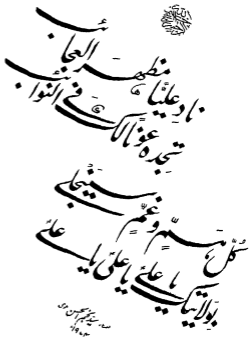 ناد علیّاً مظهر العجائب
تجده عوناً لک فی النوائب
کلّ همّ و غمّ سینجلی
بولایتک یا علی یا علی یا علی